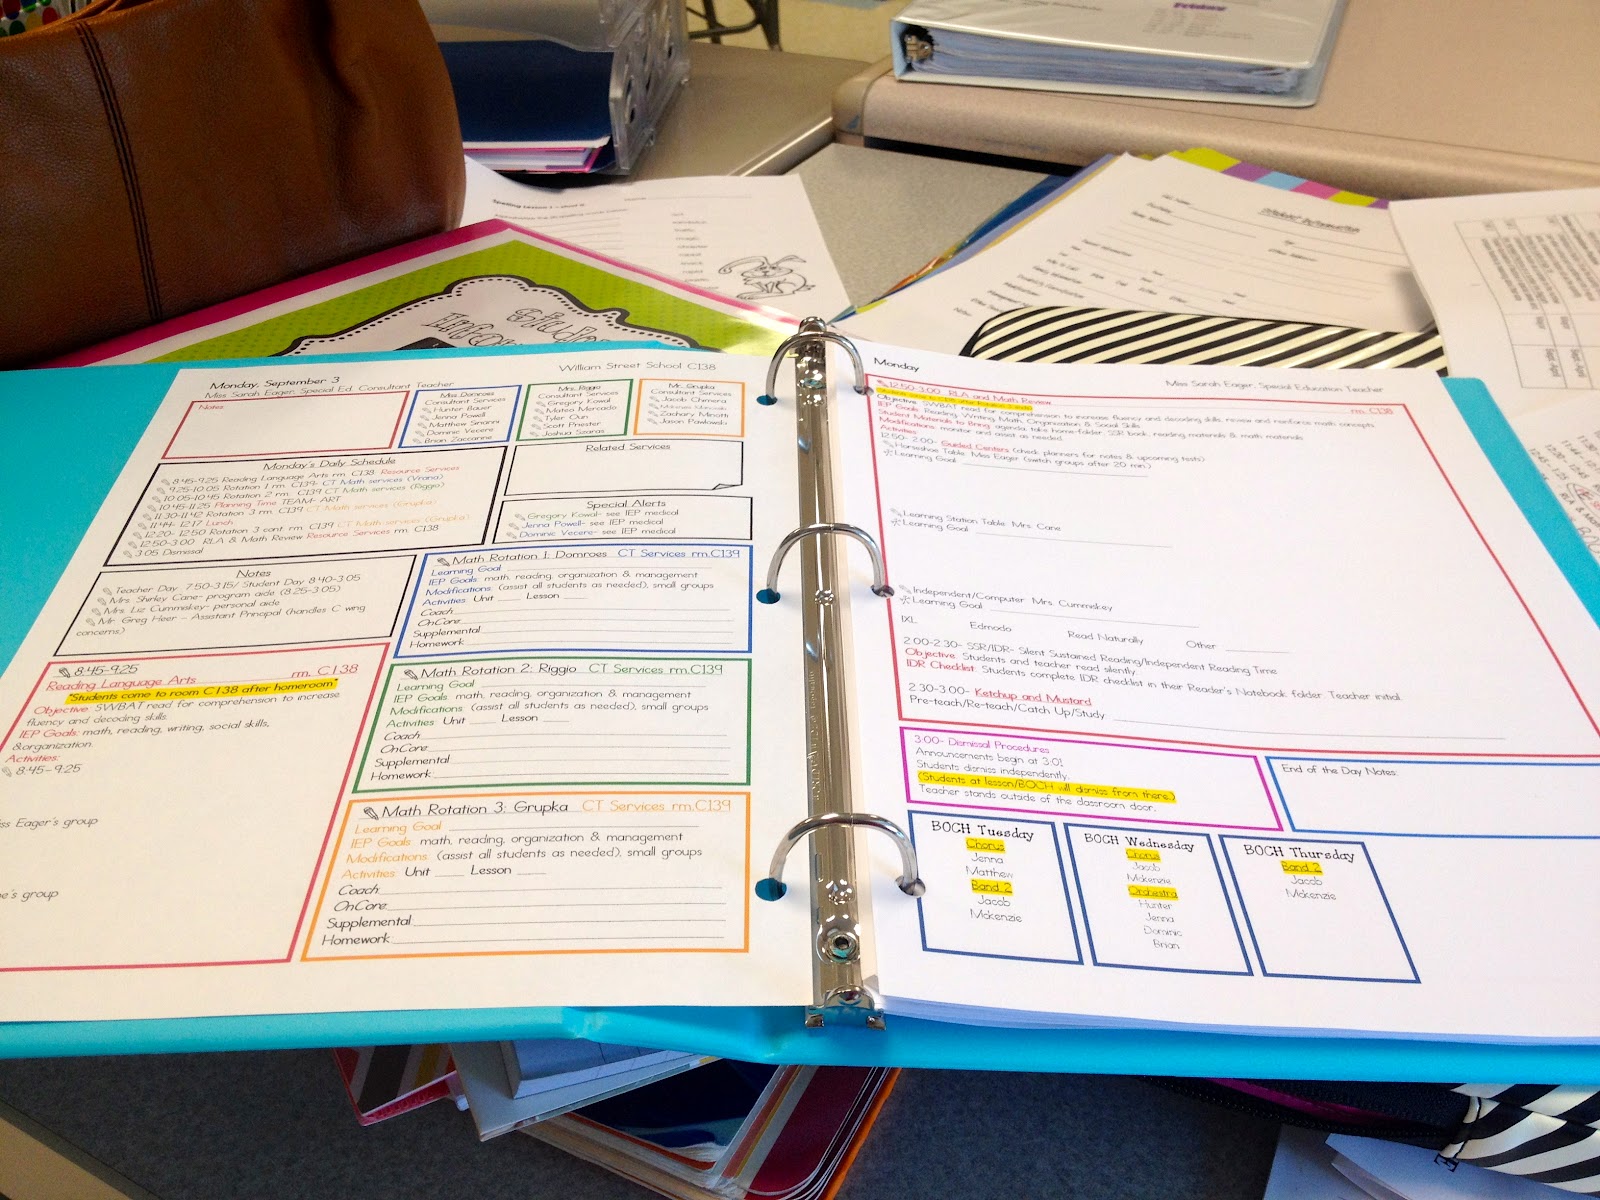 Friday
Spelling Lesson 1 -
Name
magic
chapter
rabbit
Student Information
William Street School C138
Monday, September 3
Miss Sarah Eager, Special Ed. Consultant Teacher
Notes:
Miss Domroes
Consultant Services
Hunter Bauer
Jenna Powell
Matthew Sinanni
Dominic Vecere
Brian Zaccarine
Mrs. Riggio
Consultant Services
Gregory Kowal
Mateo Mercado
Tyler Oun
Scott Priester
Joshua Sizaras
Mr. Grupka
Consultant Services
Jacob Chimera
Zachary Minotti
Jason Pawlowski
Monday's Daily Schedule
8:45-9:25 Reading Language Arts rm. C138 Resource Services
9:25-10:05 Rotation 1 rm. C139- CT Math services (Vrana)
10:05-10:45 Rotation 2 rm. C139 CT Math services (Riggio)
10:45-11:25 Planning Time TEAM- ART
11:30-11:42 Rotation 3 rm. C139 CT Math services (Grupka)
11:44- 12:17 Lunch
12:20- 12:50 Rotation 3 cont. rm. C139 CT Math services (Grupka)
12:50-3:00 RLA & Math Review Resource Services rm. C138
3:05 Dismissal
Related Services
Special Alerts
Gregory Kowal- see IEP medical
Jenna Powell- see IEP medical
Dominic Vecere- see IEP medical
Notes
Teacher Day 7:50-3:15/ Student Day 8:40-3:05
Mrs. Shirley Cane- program aide (8:25-3:05)
Mrs. Liz Cummskey- personal aide
Mr. Greg Heer - Assistant Principal (handles C wing
concerns)
8:45-9:25
Reading Language Arts rm. C138
*Students come to room C138 after homeroom*
Objective: SWBAT read for comprehension to increase
fluency and decoding skills
IEP Goals: math, reading, writing, social skills,
&organization
Activities:
8:45-9:25
ss Eager's group
e's group
Math Rotation 1: Domroes CT Services rm.C139
Learning Goal
IEP Goals: math, reading, organization & management
Modifications: (assist all students as needed), small groups
Activities: Unit ____ Lesson ____
Coach
OnCore
Supplemental
Homework
Math Rotation 2: Riggio CT Services rm.C139
Learning Goal
IEP Goals: math, reading, organization & management
Modifications: (assist all students as needed), small groups
Activities: Unit ____ Lesson ____
Coach
OnCore
Supplemental
Homework
Math Rotation 3: Grupka CT Services rm.C139
Learning Goal
IEP Goals: math, reading, organization & management
Modifications: (assist all students as needed), small groups
Activities: Unit ____ Lesson ____
Coach
OnCore
Supplemental
Homework
Monday
Miss Sarah Eager, Special Education Teacher
12:50-3:00 RLA and Math Review rm. C138
Objective: SWBAT read for comprehension to increase fluency and decoding skills, review and reinforce math concepts.
IEP Goals: Reading, Writing, Math, Organization & Social Skills.
Student Materials to Bring: agenda, take home-folder, SSR book, reading materials & math materials
Modifications: monitor and assist as needed.
Activities:
12:50- 2:00- Guided Centers (check planners for notes & upcoming tests)
Horseshoe Table: Miss Eager (switch groups after 20 min.)
Learning Goal:
Learning Station Table: Mrs. Cane
Learning Goal:
Independent/Computer: Mrs. Cummskey
Learning Goal:
IXL Edmodo Read Naturally Other
2:00-2:30- SSR/IDR- Silent Sustained Reading/Independent Reading Time
Objective: Students and teacher read silently
IDR Checklist: Students complete IDR checklist in their Reader's Notebook folder. Teacher initial.
2:30-3:00- Ketchup and Mustard
Pre-teach/Re-teach/Catch Up/Study
3:00- Dismissal Procedures
Announcements begin at 3:01
Students dismiss independently.
(Students at lesson/BOCH will dismiss from there.)
Teacher stands outside of the classroom door.
End of the Day Notes:
BOCH Tuesday
Chorus
Jenna
Matthew
Band 2
Jacob
Mckenzie
BOCH Wednesday
Chorus
Jacob
Mckenzie
Orchestra
Hunter
Jenna
Dominic
Brian
BOCH Thursday
Band 2
Jacob
Mckenzie